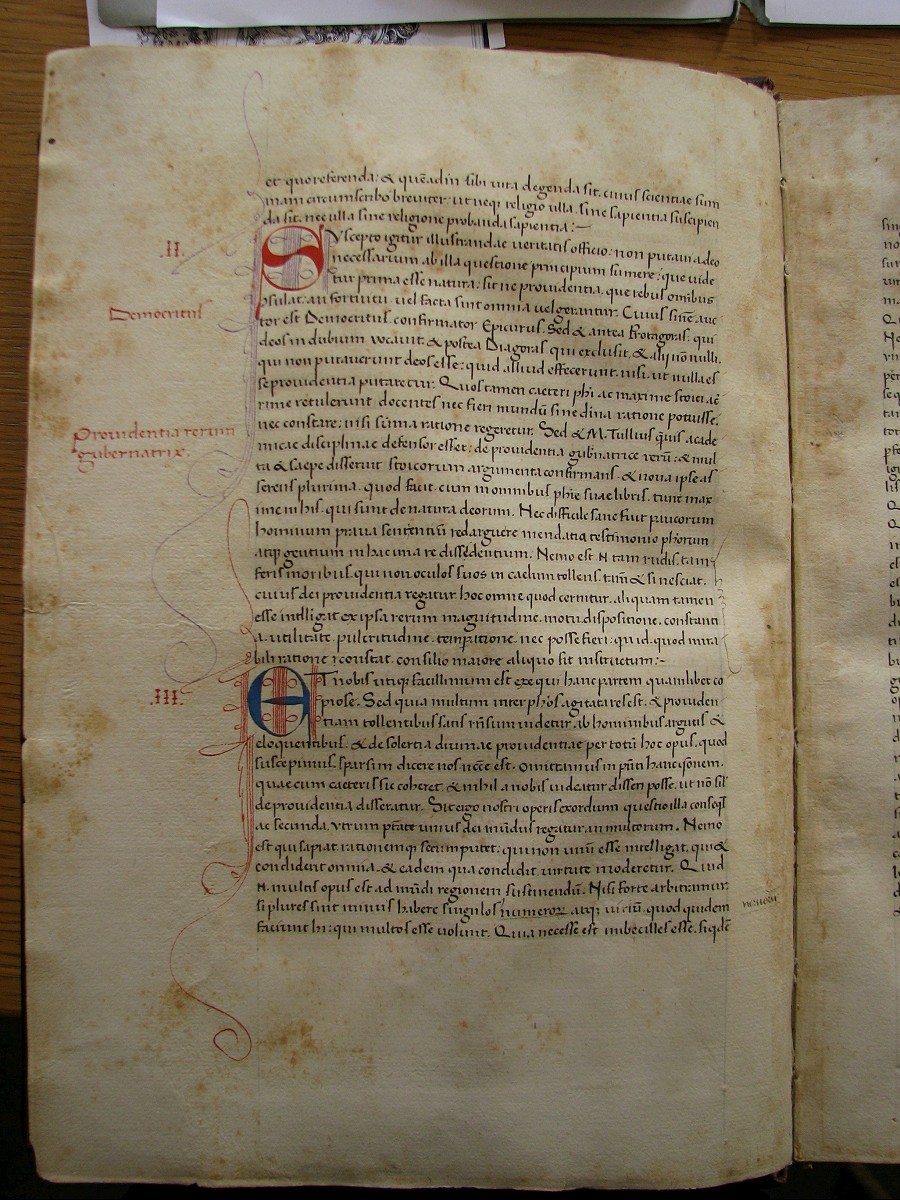 et quo referenda: & quēadm̄ sibi vita degenda sit. cuius scientiae sum
mam circumscribo breviter: ut neq; religio ulla sine sapientia suscipien
da sit. nec ulla sine religione probanda sapientia:~
.II.
SUscepto igitur illustrandae veritatis officio: non putavi adeo
necessarium ab illa questione principium sumere: que vide
tur prima esse natura: sit ne providentia. que rebus omībus
Democritus
ɔsulat: an fortuitu vel facta sint omnia vel gerantur. Cuius sn̄ae auc
tor est Democritus. confirmator Epicurus. Sed & antea Protagoras: qui
deos in dubium vocavit. & postea Diagoras qui exclusit. & alij nō nulli.
qui non putaverunt deos esse: quid aliud effecerunt. nisi. ut nulla es
se providentia putaretur: Quos tamen caeteri phi ac maxime stoici ac
rime retulerunt. docentes nec fieri mundū sine divīa ratione potuisse.
Providentia rerum
gubernatrix.
nec constare: nisi sūma ratione regeretur. Sed & M. Tullius q̄uis acade
micae disciplinae defensor esset: de providentia gub̄natrice rerū: & mul
ta & saepe disseruit stoicorum argumenta confirmans. & nova ipse as
serens plurima. quod facit. cum in omnibus phi͞e suae libris. tunc max
ime in his. qui sunt de natura deorum. Nec difficile sane fuit paucorum
hominum prava sententiū redarguere mendatia testimonio phorum
atq; gentium in hac una re dissēdentium. Nemo est .N. tam rudis. tam
feris moribus. qui non oculos suos in caelum tollens. tamē & si nesciat.
cuius dei providentia regatur hoc omne quod cernitur. aliquam tamen
esse intelligat ex ipsa rerum magnitudine. motu. dispositione. constanti
a. utilitate. pulcritudine. temp̄atione. nec posse fieri: quid. quod mira
bili ratione ɔconstat. consilio maiore aliquo sit instructum:~
.III.
ET nobis utiq; facillimum est exequi hanc partem quamlibet co
piose. Sed quia multum inter phōs agitata res est. & providen
tiam tollentibus satis rn̄sum videtur. ab hominibus argutis &
eloquentibus. & de solertia divinae providentiae per totū hoc opus. quod
suscepimus. sparsim dicere nos necēe est. omittamus in pn̄ti hanc q̄onem.
quae cum caeteris sic coheret. & nihil a nobis videatur disseri posse. ut nō sil̄
de providentia disseratur. Sit ergo nostri operis exordium questio illa conseq̄s
ac secunda. Utrum ptāte unius dei mūdus regatur. an multorum. Nemo
est qui sapiat. rationemq; secum putet: qui non unū esse intelligat. qui &
condiderit omnia. & eadem qua condidit virtute moderetur. Quid
.N. multis opus est ad mūdi regionem sustinendū. Nisi forte arbitramur.
si plures sint minus habere singulos numeror̄ atq; viriū. quod quidem
nervorum
faciunt hi: qui multos esse volunt. Quia necesse est imbecilles esse. siqdē